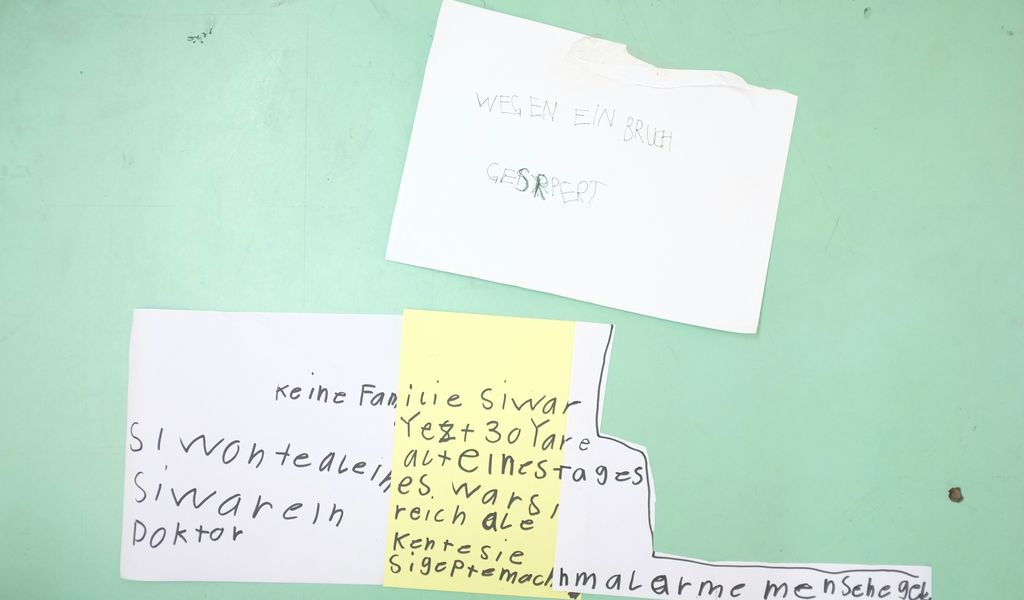 WEGEN EIN BRUCH
GESRPERT
keine Familie Siwar
Siwontealein
Yezt 30 Yare
alt einestages
Siwarein
es. wars i
Doktor
reich ale
Kentesie
Sigeptemachhmalarme menschegel